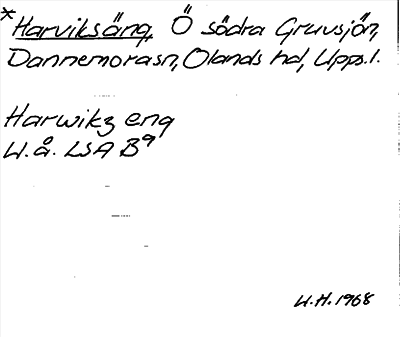 *Harviksäng, Ö södra Gruvsjön,
Dannemorasn, Olands hd, Upps.l.
Harwikz eng
U.å. LSA B⁹
U.H. 1968